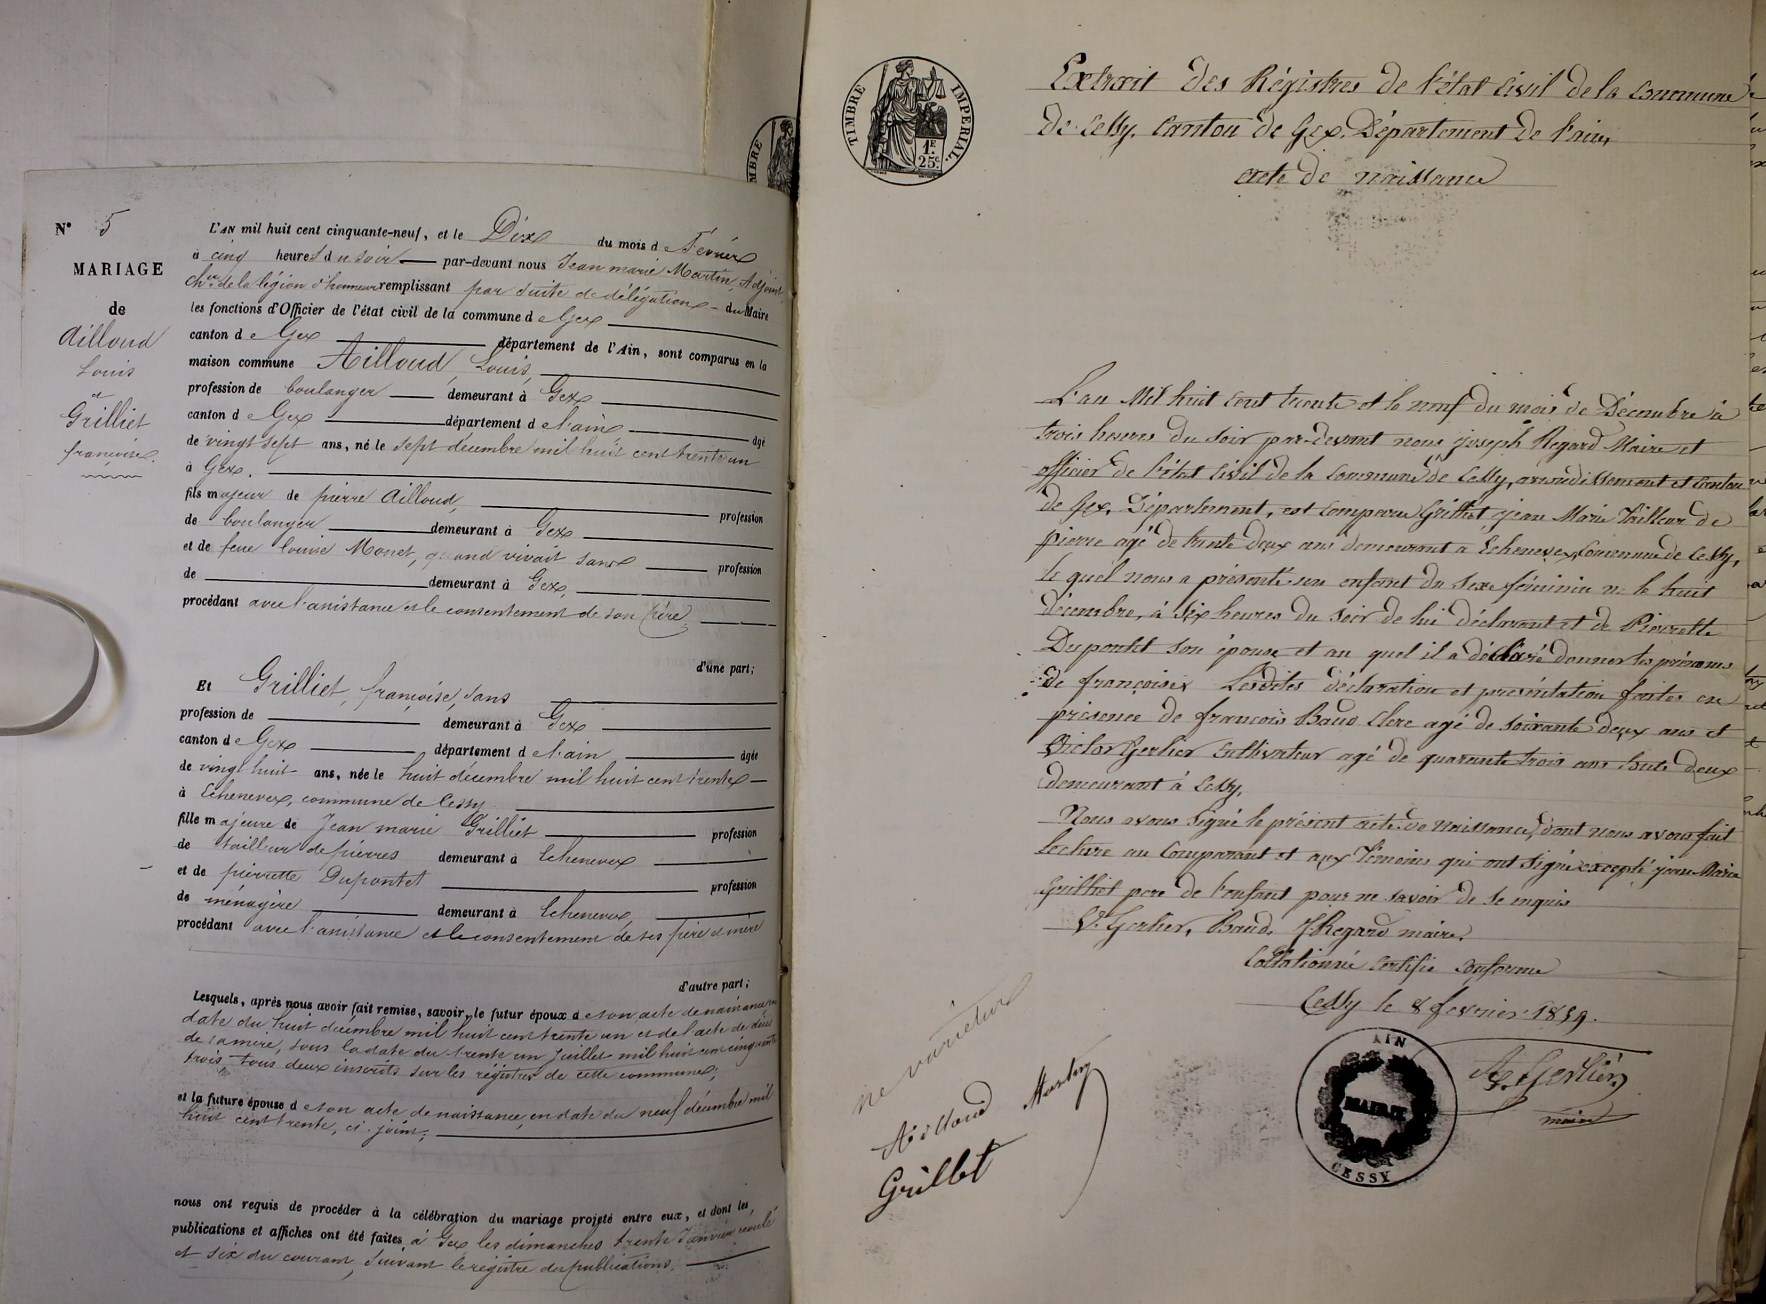 N° 5
MARIAGE
de
Ailloud
Louis
et
Grilliet
françoise.
L'AN mil huit cent cinquante-neuf, et le Dix du mois de Février
à cinq heures du soir par-devant nous Jean marie Martin, Adjoint
Ch.er de la légion d'honneur remplissant par suite de délégation du Maire
les fonctions d'Officier de l'état civil de la commune de Gex
canton de Gex département de l'Ain, sont comparus en la
maison commune Ailloud, Louis,
profession de boulanger demeurant à Gex
canton de Gex département de l'ain âgé
de vingt sept ans, né le sept décembre mil huit cent trente un
à Gex.
fils majeur de pierre Ailloud, profession
de boulanger demeurant à Gex
et de feue louise Monet, quand vivait sans profession
de demeurant à Gex,
procédant avec l'assistance et le consentement de son père,
d'une part;
Et Grilliet, françoise, sans
profession de demeurant à Gex
canton de Gex département de l'ain âgée
de vingt huit ans, née le huit décembre mil huit cent trente
à Echenevex, commune de Cessy
fille majeure de Jean marie Grilliet profession
de tailleur de pierres demeurant à Echenevex
et de pierrette Dupontet profession
de ménagère demeurant à Echenevex,
procédant avec l'assistance et le consentement de ses père et mère
d'autre part;
Lesquels, après nous avoir fait remise, savoir, le futur époux de son acte de naissance en
date du huit décembre mil huit cent trente un et de l'acte de décès
de sa mère, sous la date du trente un juillet mil huit cent cinquante
trois, tous deux inscrits sur les régistres de cette commune;
et la future épouse de son acte de naissance, en date du neuf décembre mil
huit cent trente, ci-joint;
nous ont requis de procéder à la célébration du mariage projeté entre eux, et dont les
publications et affiches ont été faites à Gex les dimanches trente Janvier écoulé
et six du courant, suivant le régistre des publications.
MBRE
TIMBRE IMPERIAL.
1F.
25c.
Extrait des Régistres de l'état civil de la Commune
de Cessy. Canton de Gex. Département de l'ain,
acte de naissance
L'an Mil huit cent trente et le neuf du mois de Décembre à
trois heures du soir par-devant nous joseph Regard Maire et
officier de l'état Civil de la Commune de Cessy, arrondissement et Canton
de Gex, Département, est comparu Grilliet jean Marie Tailleur de
pierre agé de trente deux ans demeurant à Echenevex, Commune de Cessy,
le quel nous a présenté un enfant du sexe féminin né le huit
décembre, à six heures du soir de lui déclarant et de Pierrette
Dupontet son épouse et au quel il a déclaré donner les prénoms
de françoise. Lesdites déclaration et présentation faites en
présence de françois Baud Clerc agé de soixante deux ans et
Victor Gerlier Cultivateur agé de quarante trois ans touts deux
demeurant à Cessy.
Nous avons signé le présent acte de naissance, dont nous avons fait
lecture au Comparant et aux Témoins qui ont signé excepté jean Marie
Grilliet pere de l'enfant pour ne savoir de ce enquis
V. Gerlier, Baud, J. Regard maire.
Collationné Certifié conforme
Cessy le 8 fevrier 1859.
ne varietur
Ailloud Martin
Grillet
AIN
MAIRIE
CESSY
Gerlier
maire